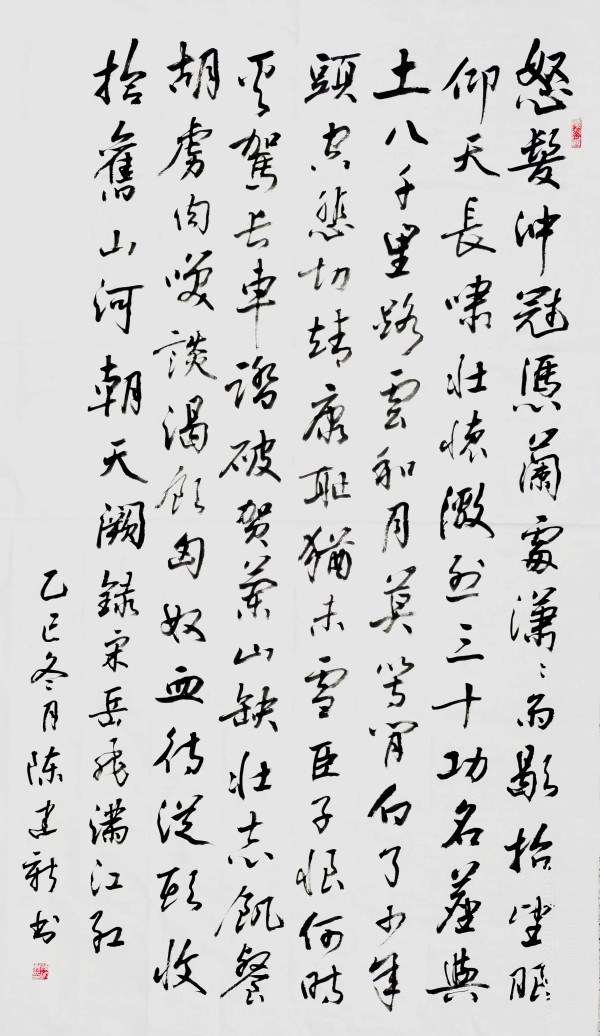 怒髮沖冠憑闌處瀟〻雨歇抬望眼
仰天長嘯壯懷激烈三十功名塵與
土八千里路雲和月莫等閒白了少年
頭空悲切靖康耻猶未雪臣子恨何時
滅駕長車踏破賀蘭山缺壯志飢餐
胡虜肉笑談渴飲匈奴血待從頭收
拾舊山河朝天闕録宋岳飛滿江紅
乙巳冬月陈建新书